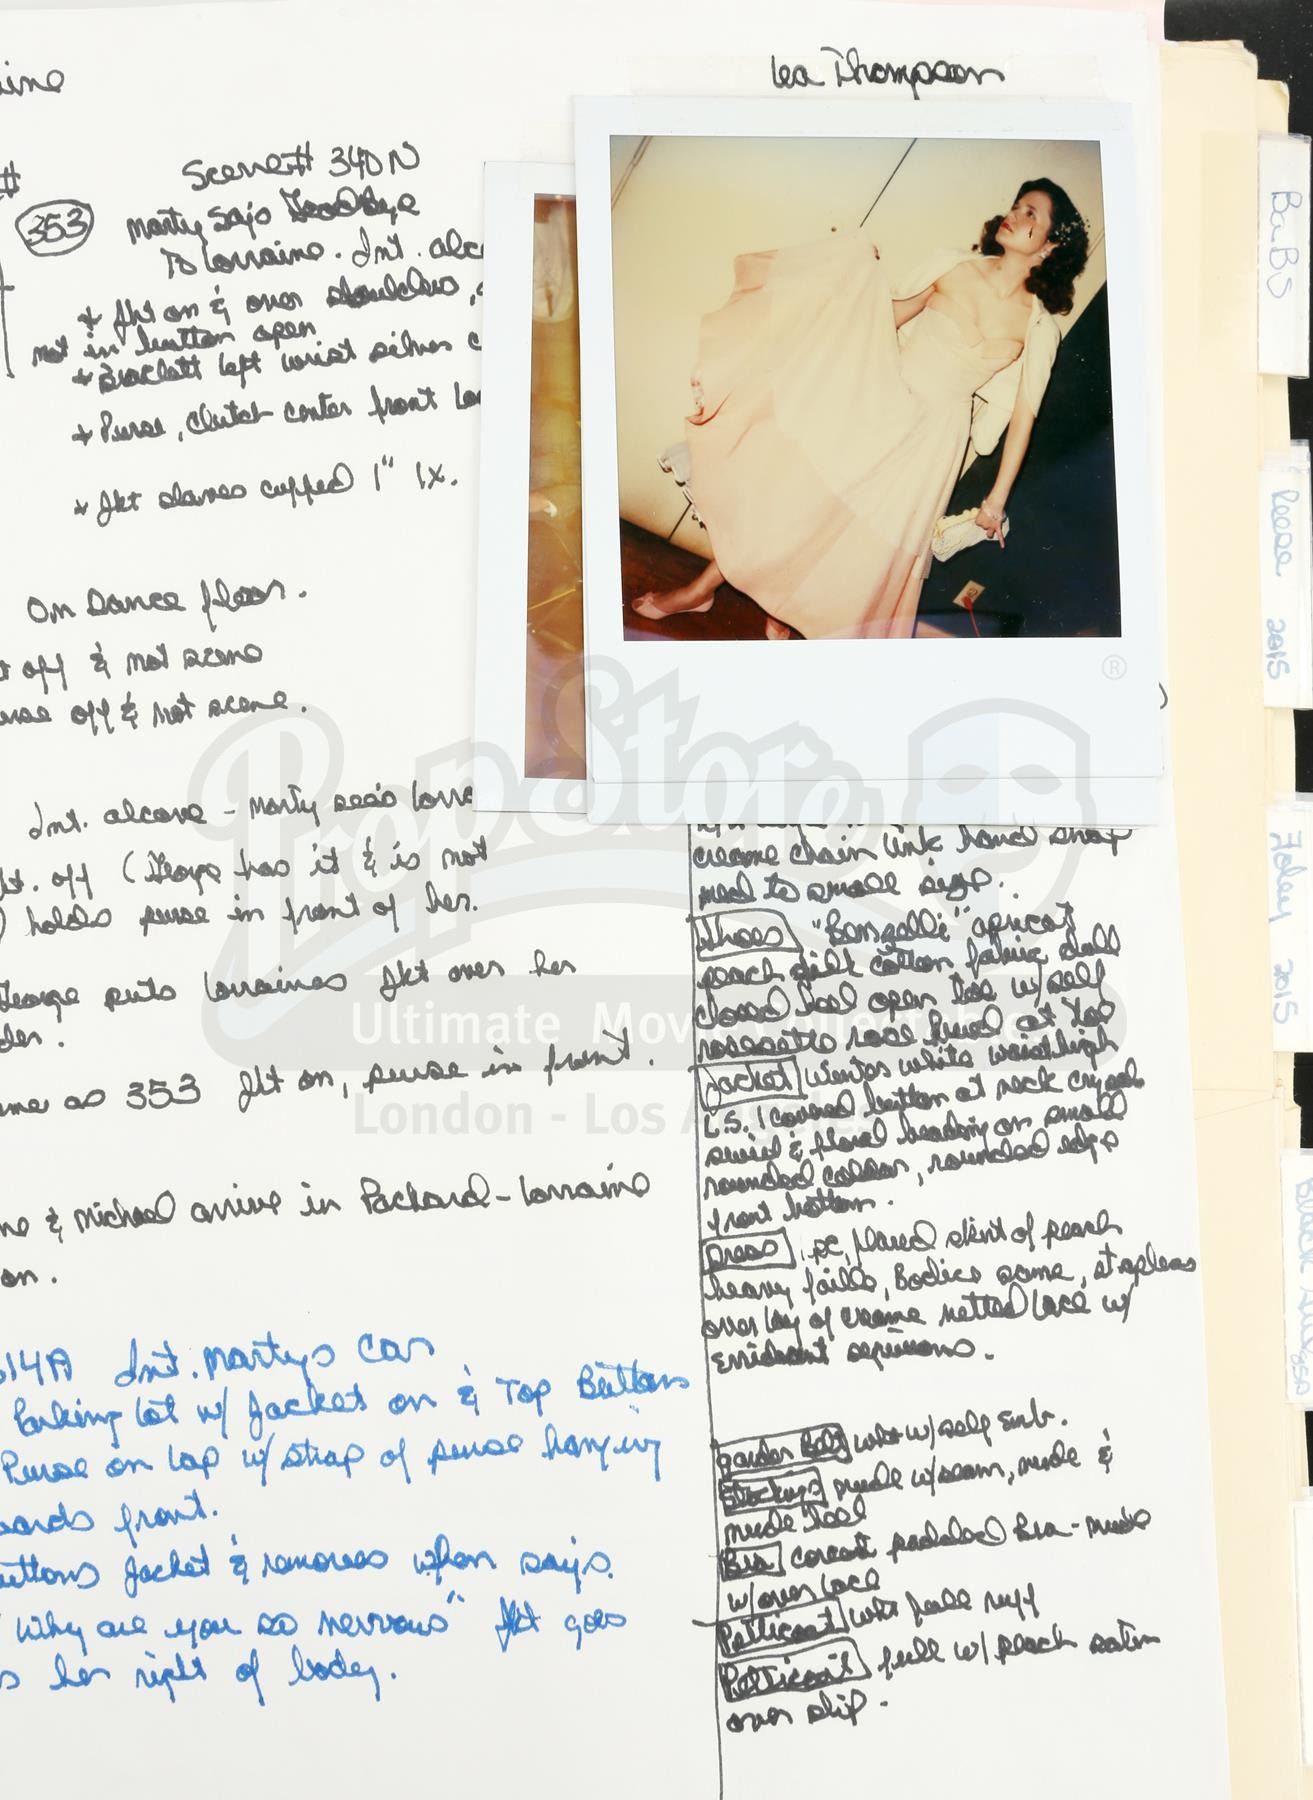 Lea Thompson
Scene # 340N
353
Marty Says Goodbye
To Lorraine. Int. alco
* Jkt on & over shoulders,
not in button open
* Bracelett left wrist silver c
* Purse, Clutch center front
* Jkt sleeves cuffed 1" 1x.
On Dance floor.
off & not scene
off & not scene.
Int. alcove - Marty sees Lorra
off (George has it & is not
holds purse in front of her.
George puts Lorraines Jkt over her
as 353 Jkt on, purse in front.
& Michael arrive in Packard - Lorraine
on.
14A Int. Martys Car
Parking Lot w/ Jacket on & Top Buttons
Purse on lap w/ strap of purse hanging
front.
Jacket & removes when says.
"Why are you so nervous" Jkt goes
her right of body.
creame chain link hand strap
to small
Shoes apricot
peach silk cotton fabric
closed heel open toe w/ self
rose at toe
Jacket Winter white waist high
L.S. 1 covered button at neck
& floral beading on small
rounded collar, rounded edge
front bottom.
Dress flared skirt of peach
heavy faille, Bodice same, strapless
overlay of creame netted lace w/
Garder Belt wht w/ self emb.
Stockings nude w/ seam, nude &
nude heel
Bra padded Bra - nude
w/ over lace
Petticoat wht full
Petticoat full w/ peach satin
over slip.
BaBS
Reese 2015
Foley 2015
PropStore
®
Ultimate Movie Collectables
London - Los Angeles